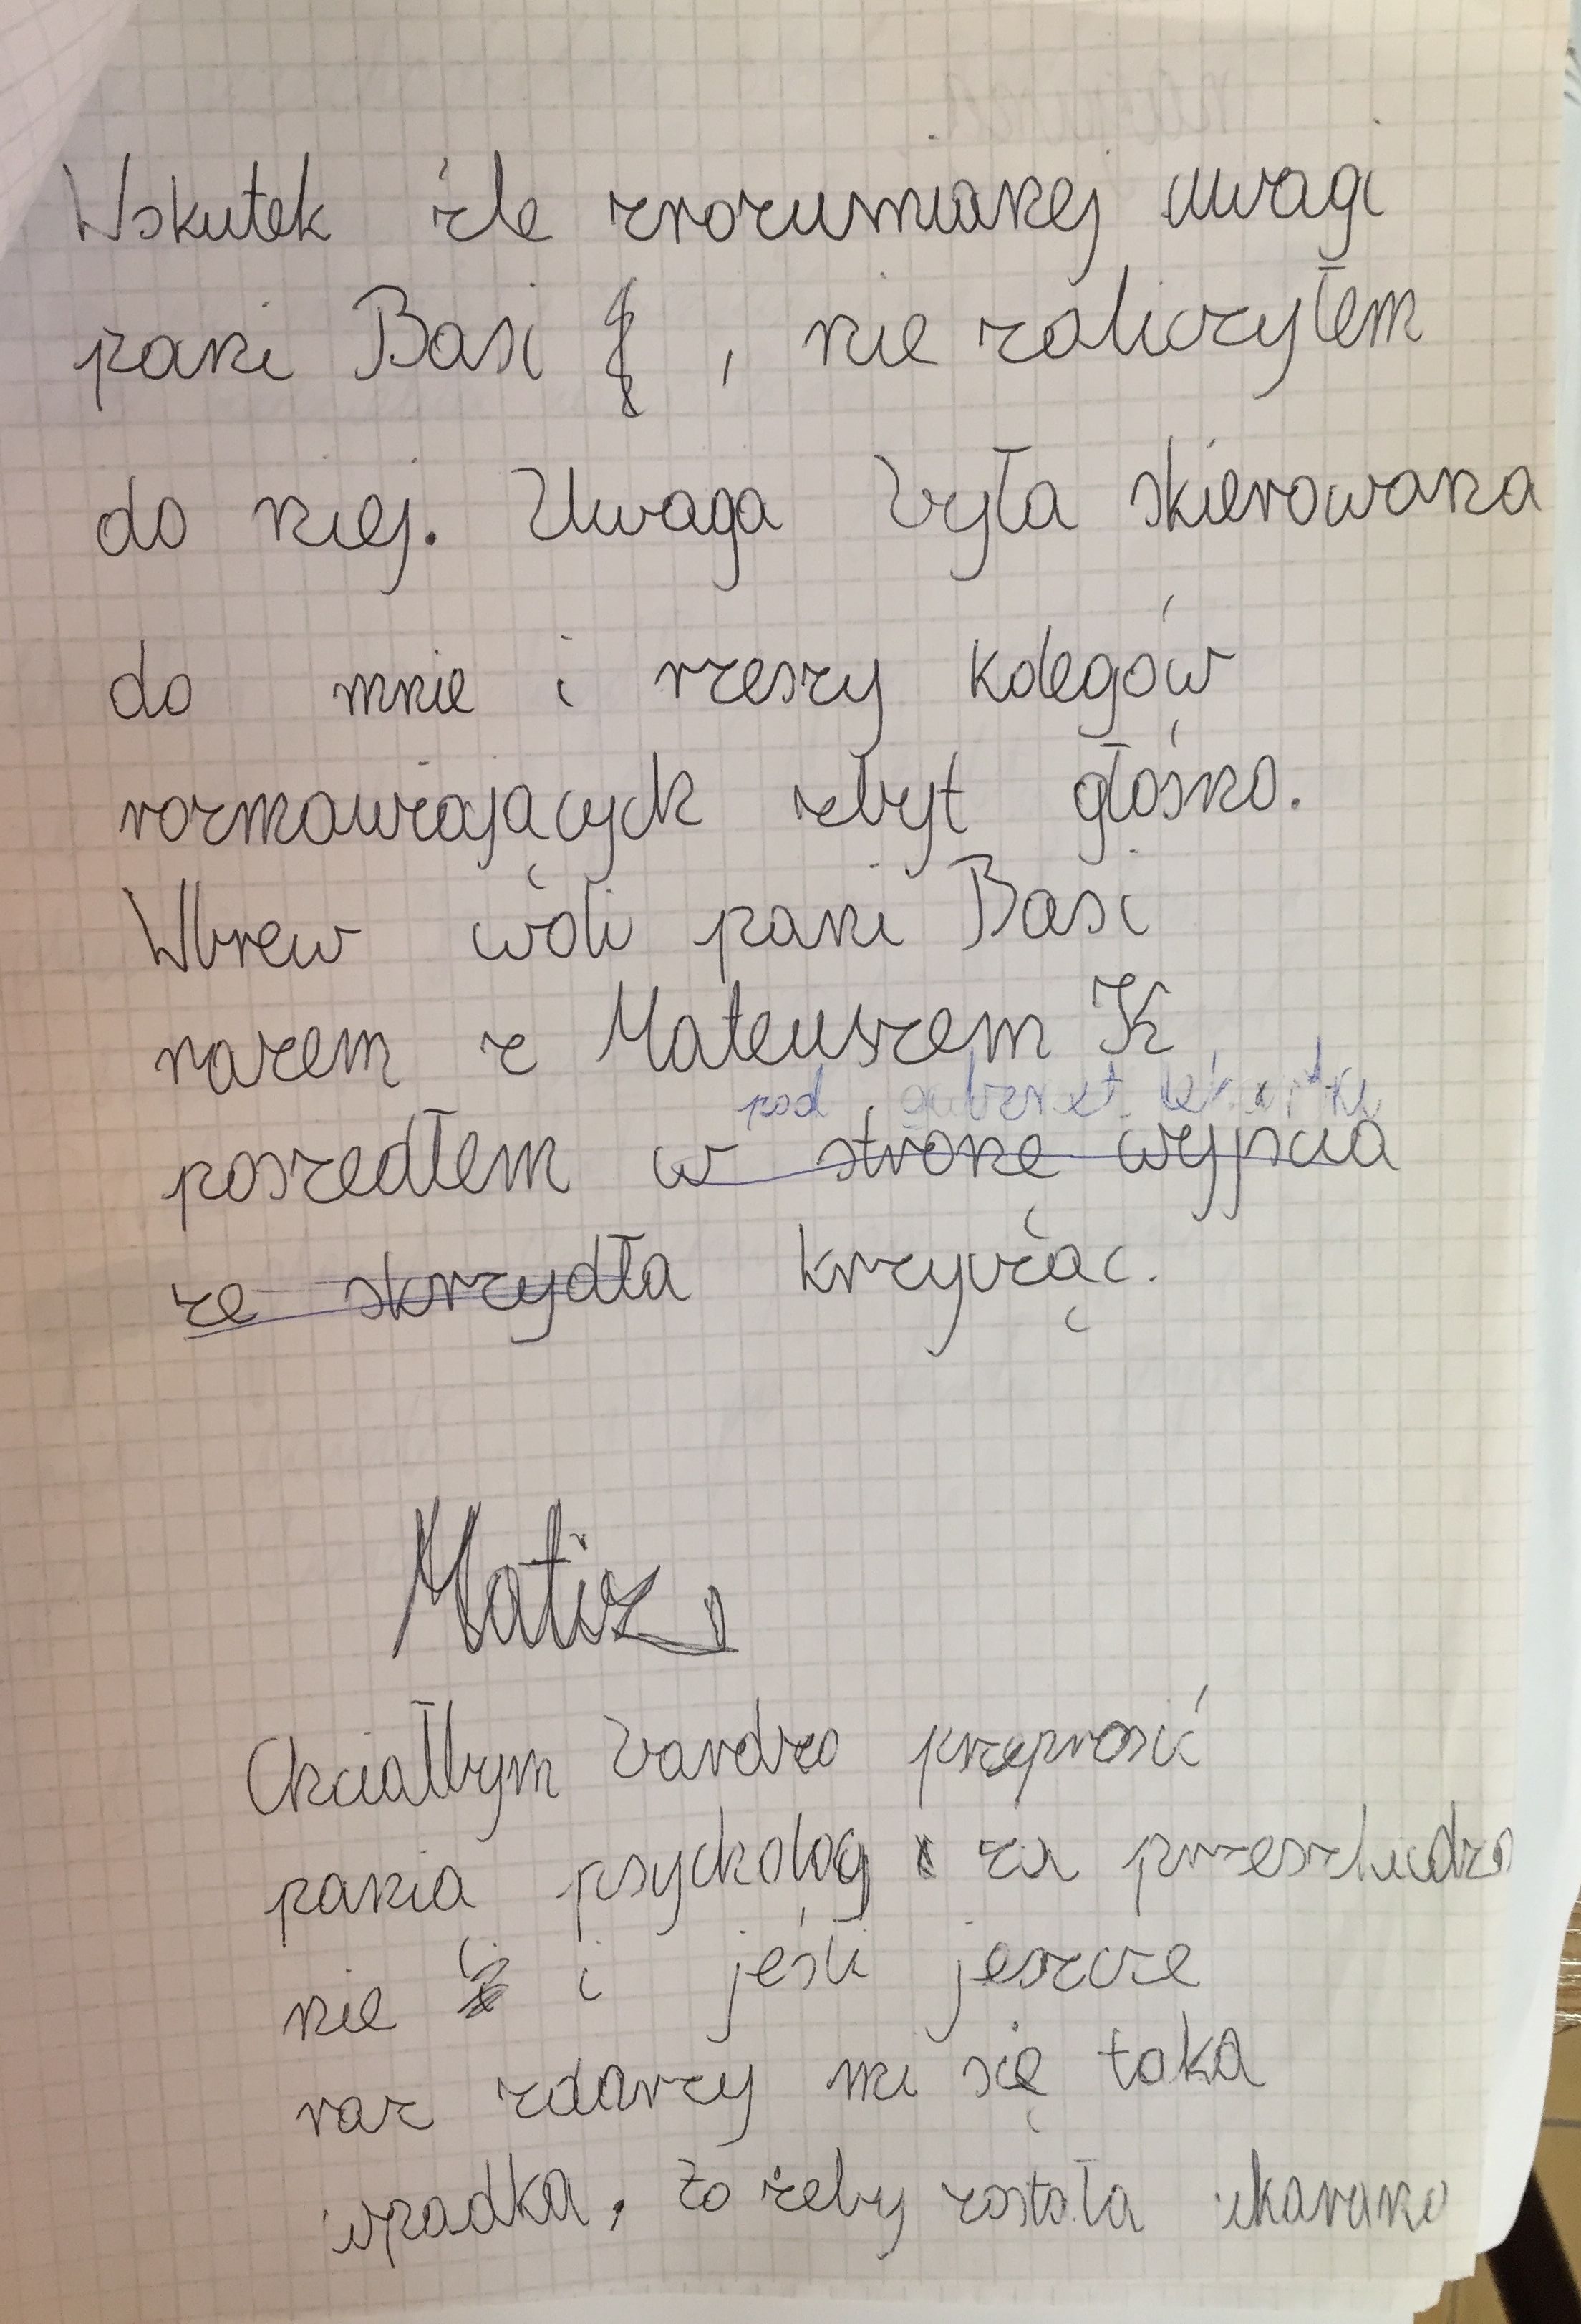 Wskutek źle zrozumianej uwagi
pani Basi , nie zaliczyłem
do niej. Uwaga była skierowana
do mnie i rzeszy kolegów
rozmawiających zbyt głośno.
Wbrew woli pani Basi
razem z Mateuszem K
pod gabinet
poszedłem w stronę wyjścia
ze skrzydła krzycząc.
Chciałbym bardzo przeprosić
pania psycholog za przeszkadza
nie i jeśli jeszcze
raz zdarzy mi się taka
wpadka, to żeby została ukarana